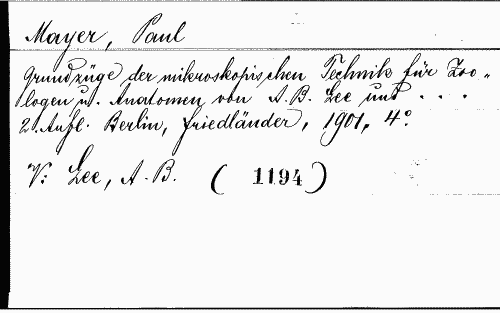 Mayer, Paul
Grundzüge der mikroskopischen Technik für Zoo-
logen u. Anatomen von A. B. Lee und . . .
2. Aufl. Berlin, Friedländer, 1901, 4°.
V: Lee, A. B. (1194)